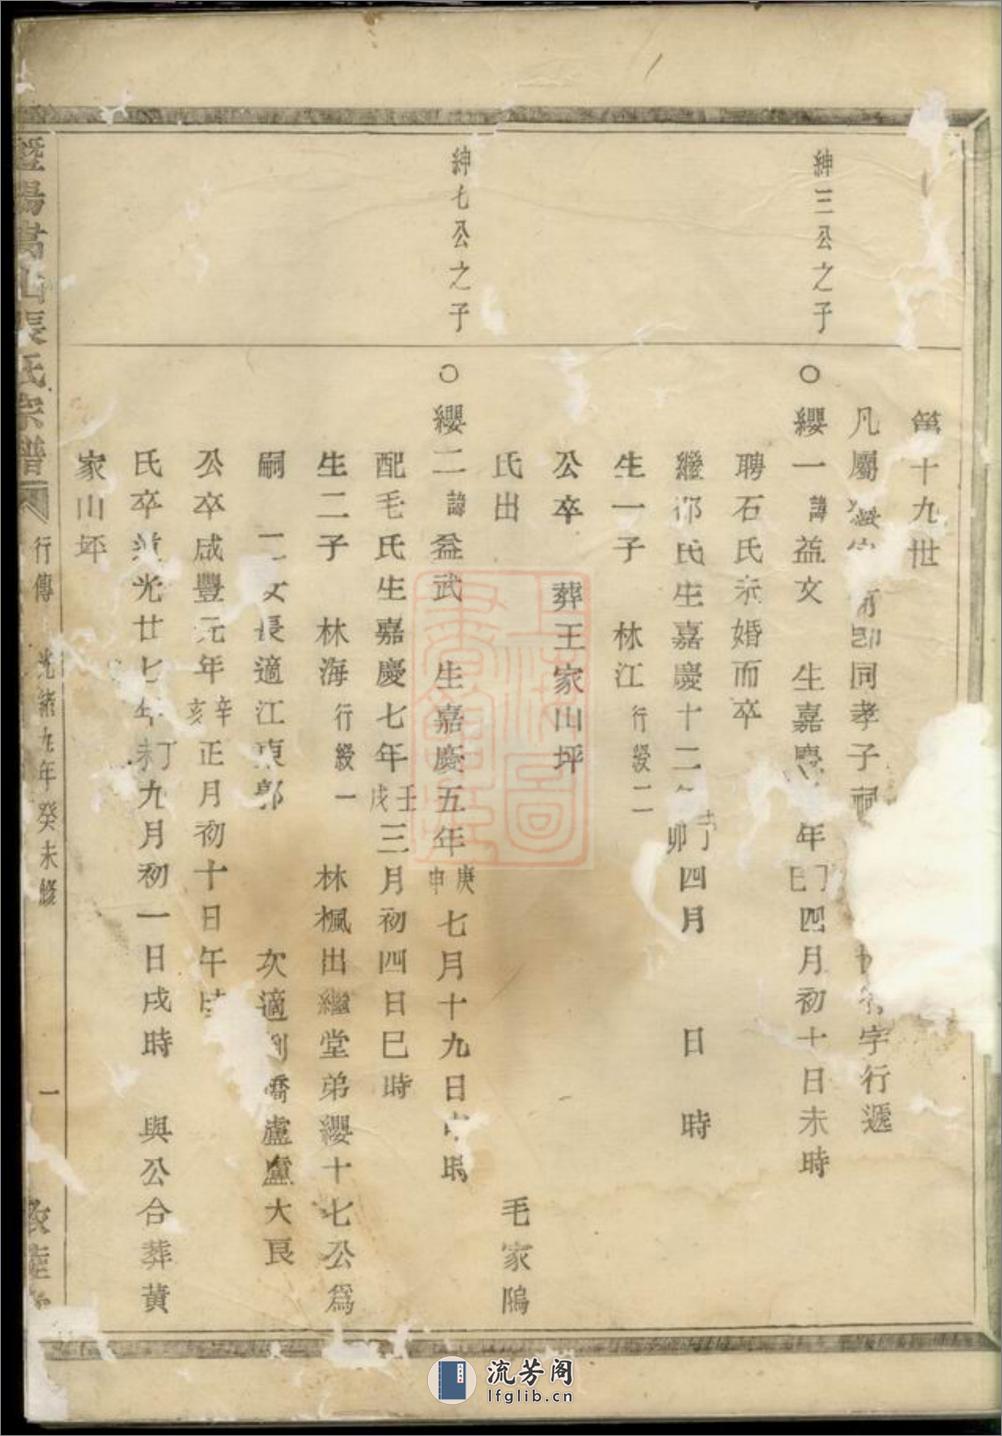 第十九世
凡屬 同孝子祠 字行遞
紳三公之子
○纓一諱益文 生嘉慶 年 四月初十日未時
聘石氏未婚而卒
繼 氏生嘉慶十二年丁卯四月 日 時
生一子 林江行綬二
公卒 葬王家山坪
氏出 毛家隖
紳七公之子
○纓二諱益武 生嘉慶五年庚申七月十九日 時
配毛氏生嘉慶七年壬戌三月初四日巳時
生二子 林海行綬一 林楓出繼堂弟纓十七公爲
嗣 二女長適江東郭 次適 盧盧大良
公卒咸豐元年辛亥正月初十日午時
氏卒道光廿七年丁未九月初一日戌時 與公合葬黃
家山坪
暨陽嵩山張氏宗譜 行傳 光緒九年癸未修 一 敦睦堂
流芳阁
lfglib.cn